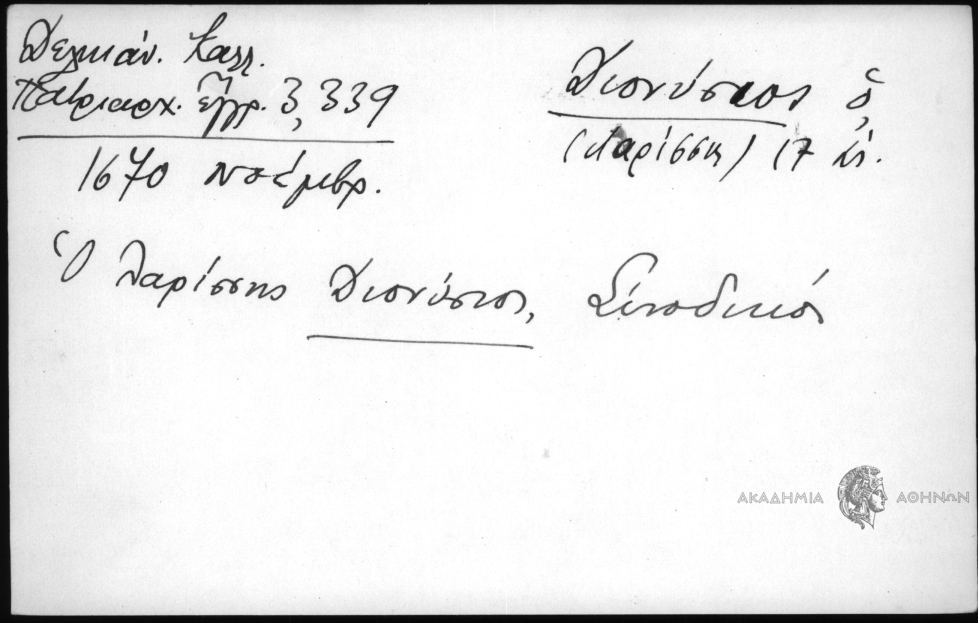 Δελικάν. Καλλ.
Πατριαρχ. ἔγγρ. 3, 339
1670 Νοέμβρ.
Διονύσιος ὁ
(Λαρίσσης) 17 αἰ.
Ὁ Λαρίσσης Διονύσιος, Συνοδικός
ΑΚΑΔΗΜΙΑ ΑΘΗΝΩΝ